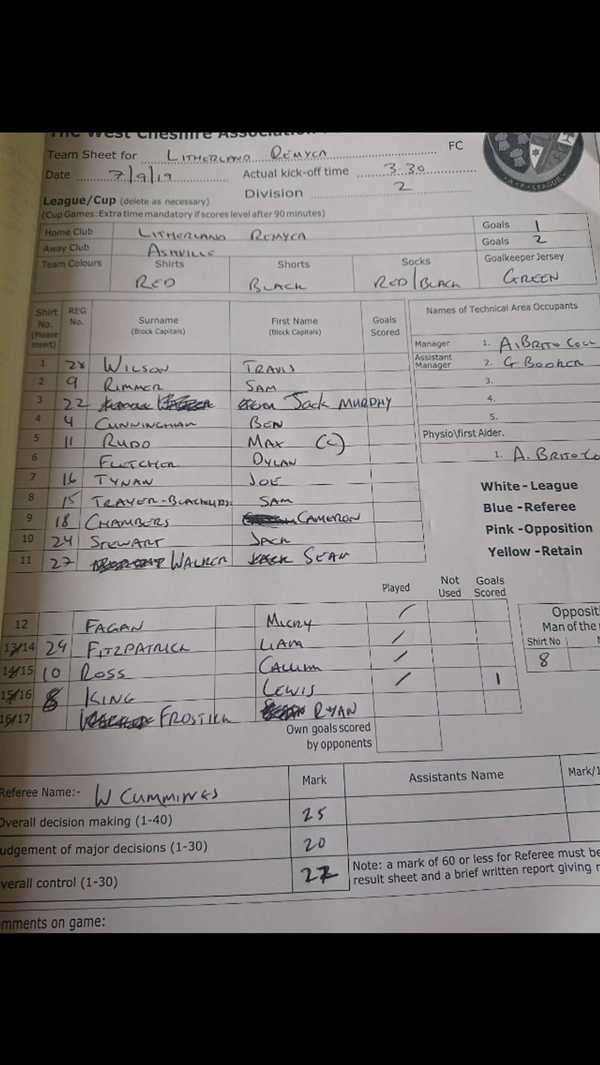 The West Cheshire Association
Team Sheet for LITHERLAND REMYCA FC
Date 7/9/19 Actual kick-off time 3.30
League/Cup (delete as necessary) Division 2
(Cup Games: Extra time mandatory if scores level after 90 minutes)
Home Club LITHERLAND REMYCA Goals 1
Away Club ASHVILLE Goals 2
Team Colours Shirts Shorts Socks Goalkeeper Jersey
RED BLACK RED/BLACK GREEN
Shirt No. (Please insert) REG No. Surname (Block Capitals) First Name (Block Capitals) Goals Scored
Names of Technical Area Occupants
Manager 1. A. BRITO COLL
Assistant Manager 2. G BOOKER
3.
4.
5.
Physio\first Aider.
1. A. BRITO CO
White - League
Blue - Referee
Pink - Opposition
Yellow - Retain
1 28 WILSON TRAVIS
2 9 RIMMER SAM
3 22 Jack MURPHY
4 4 CUNNINGHAM BEN
5 11 RUDD MAX (C)
6 FLETCHER DYLAN
7 16 TYNAN JOE
8 15 SAM
9 18 CHAMBERS CAMERON
10 24 STEWART JACK
11 27 WALKER SEAN
Played Not Used Goals Scored
12 FAGAN MICKY /
13/14 29 FITZPATRICK LIAM /
14/15 10 ROSS CALLUM /
15/16 8 KING LEWIS / 1
16/17 FROSTICK RYAN
Own goals scored by opponents
Opposit
Man of the
Shirt No
8
Referee Name:- W CUMMINGS Mark Assistants Name Mark/1
Overall decision making (1-40) 25
udgement of major decisions (1-30) 20
verall control (1-30) 27
Note: a mark of 60 or less for Referee must be
result sheet and a brief written report giving
mments on game: